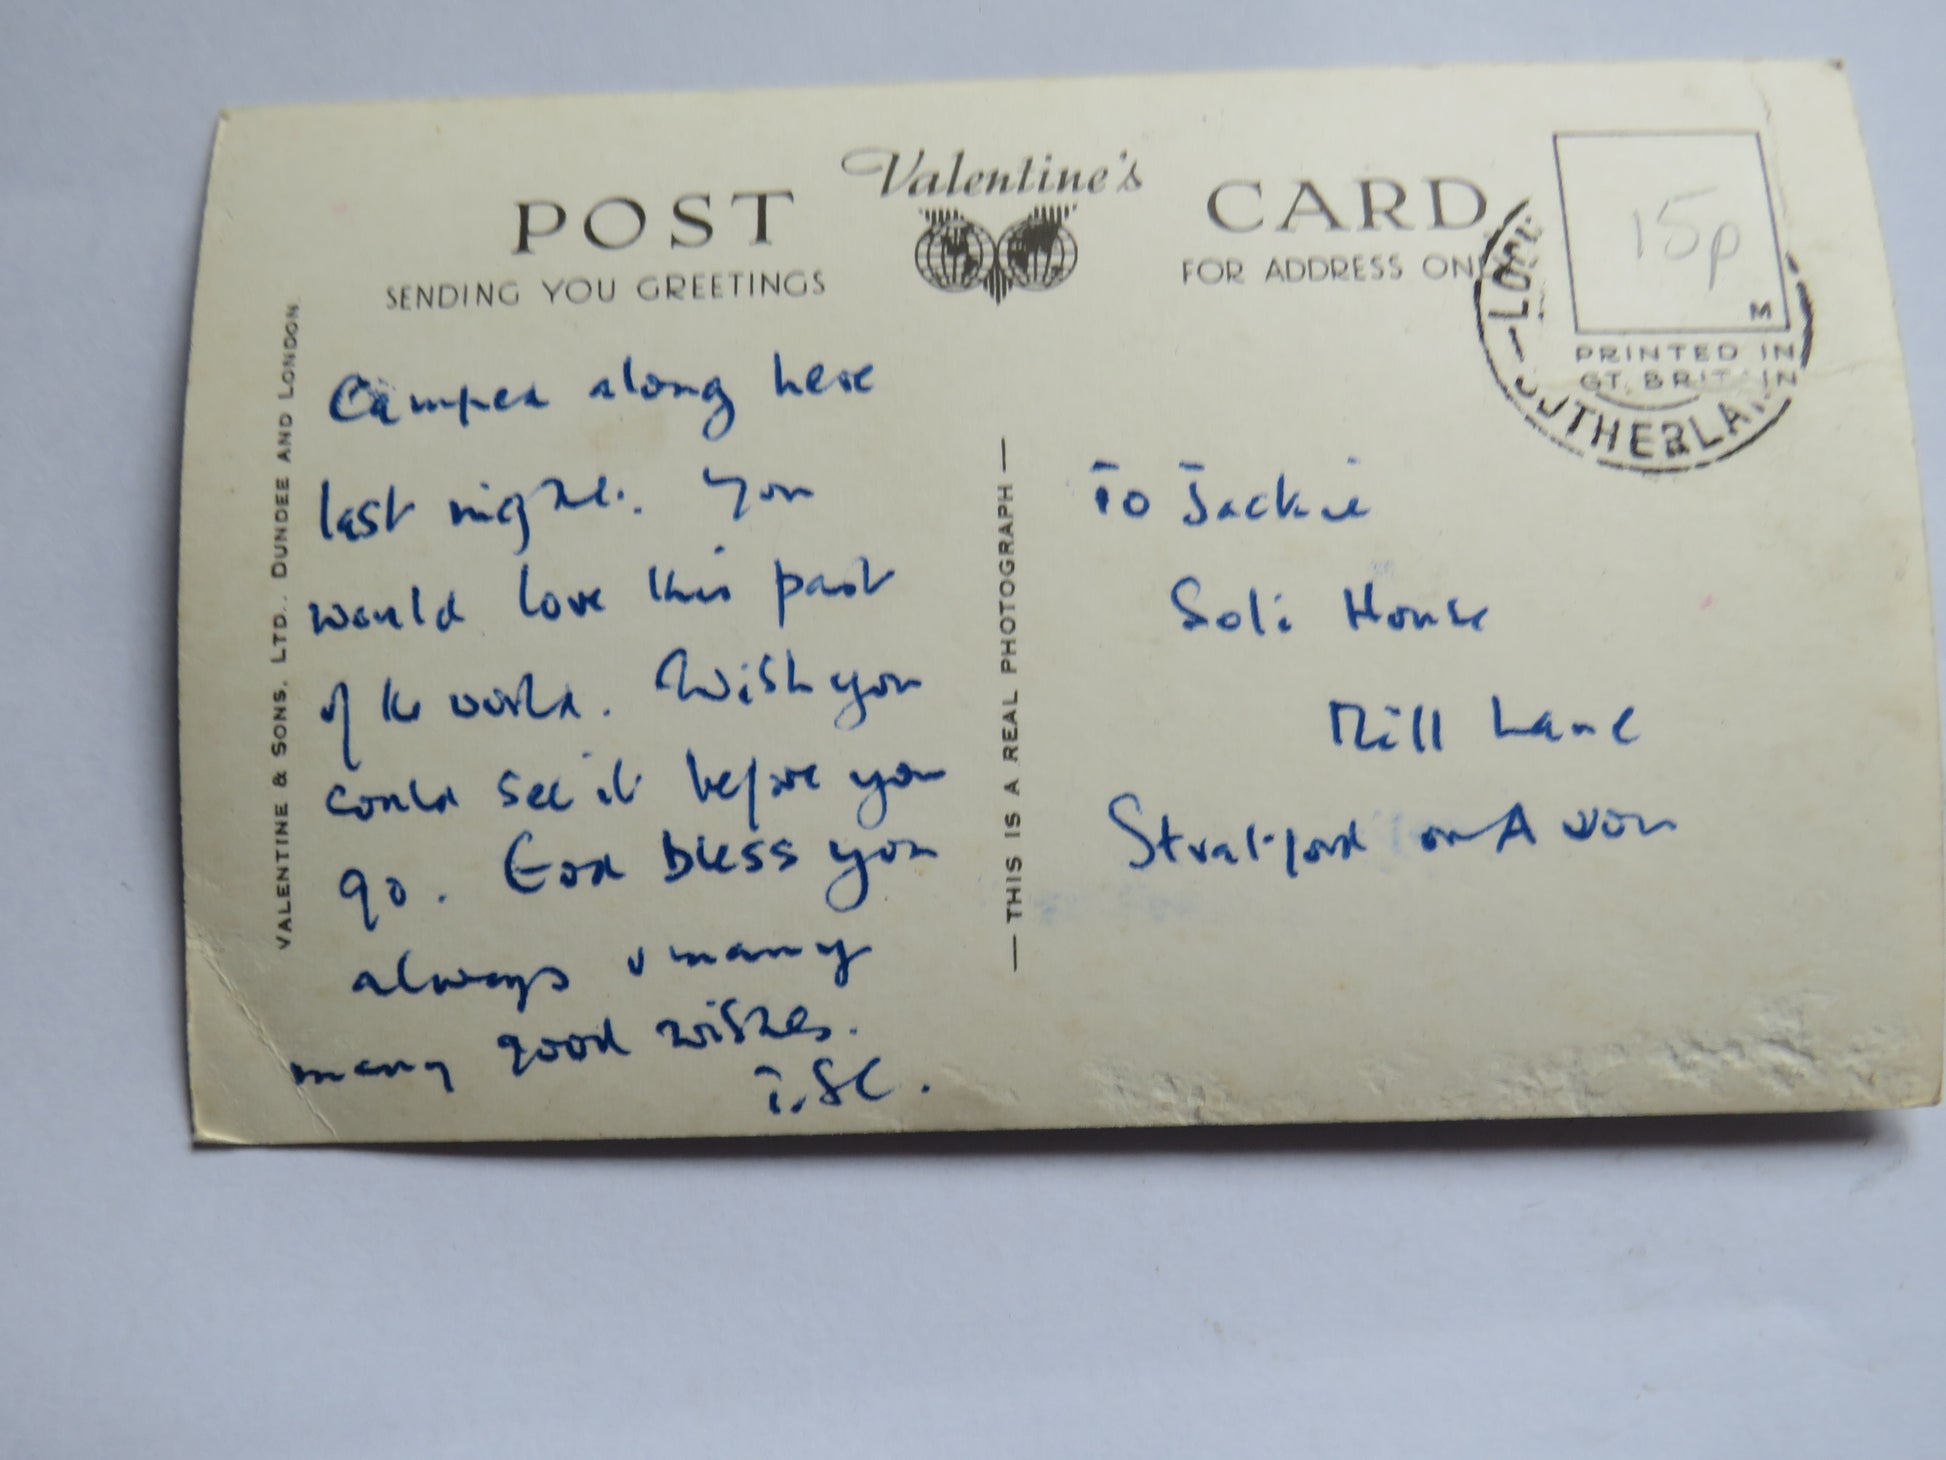 Valentine's
POST CARD
SENDING YOU GREETINGS
FOR ADDRESS ON
15p
M
PRINTED IN
GT. BRITAIN
SUTHERLAN
VALENTINE & SONS, LTD., DUNDEE AND LONDON
— THIS IS A REAL PHOTOGRAPH —
Camped along here
last night. You
would love this part
of the world. Wish you
could see it before you
go. God bless you
always & many
many good wishes.
To Jackie
House
Mill Lane
Stratford on Avon